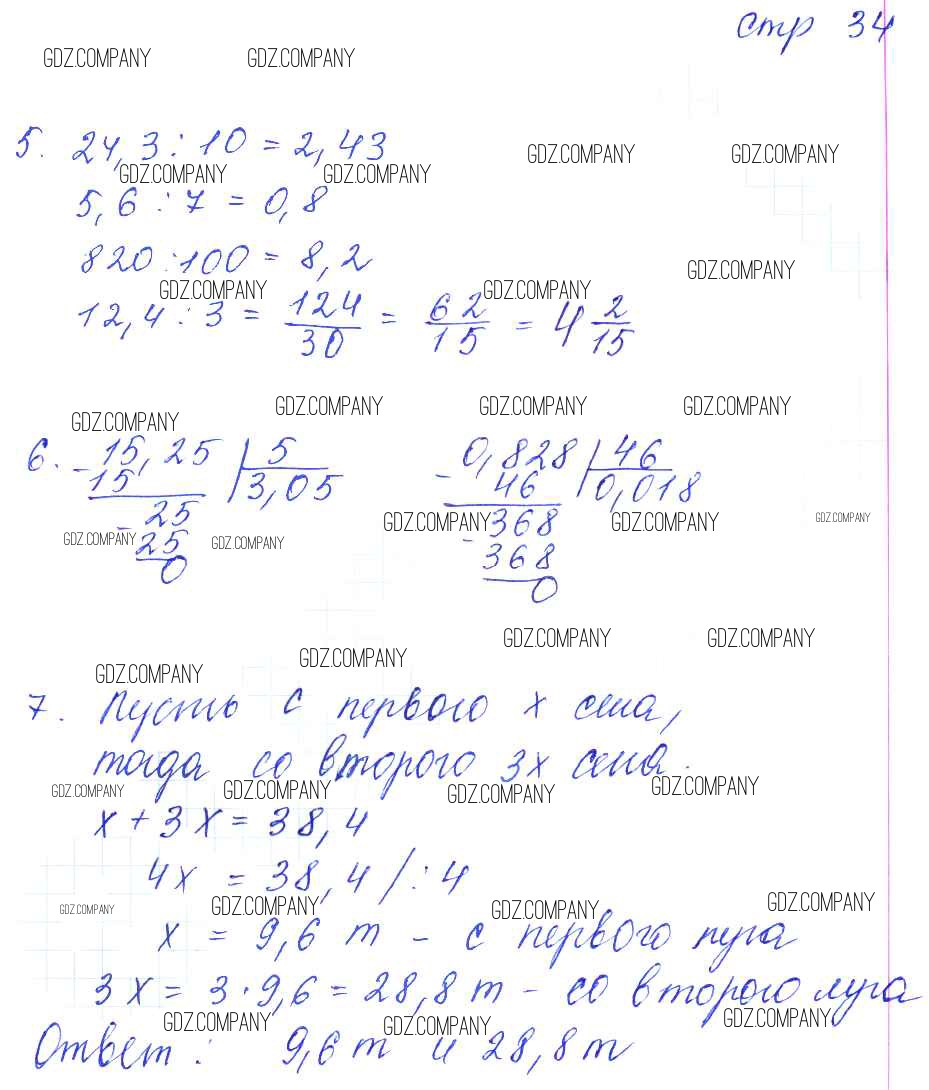 стр 34
GDZ.COMPANY GDZ.COMPANY
5. 24,3 : 10 = 2,43
GDZ.COMPANY GDZ.COMPANY
GDZ.COMPANY GDZ.COMPANY
5,6 : 7 = 0,8
820 : 100 = 8,2
GDZ.COMPANY
GDZ.COMPANY GDZ.COMPANY
12,4 : 3 = 124/30 = 62/15 = 4 2/15
GDZ.COMPANY GDZ.COMPANY GDZ.COMPANY GDZ.COMPANY
6. - 15,25 | 5 - 0,828 | 46
15 3,05 46 0,018
- 25 - 368
GDZ.COMPANY GDZ.COMPANY GDZ.COMPANY GDZ.COMPANY GDZ.COMPANY
25 368
0 0
GDZ.COMPANY GDZ.COMPANY
GDZ.COMPANY GDZ.COMPANY
7. Пусть с первого х сена,
тогда со второго 3х сена.
GDZ.COMPANY GDZ.COMPANY GDZ.COMPANY GDZ.COMPANY
х + 3х = 38,4
4х = 38,4 / : 4
GDZ.COMPANY GDZ.COMPANY GDZ.COMPANY GDZ.COMPANY
х = 9,6 т - с первого луга
3х = 3 · 9,6 = 28,8 т - со второго луга
GDZ.COMPANY GDZ.COMPANY GDZ.COMPANY
Ответ : 9,6 т и 28,8 т